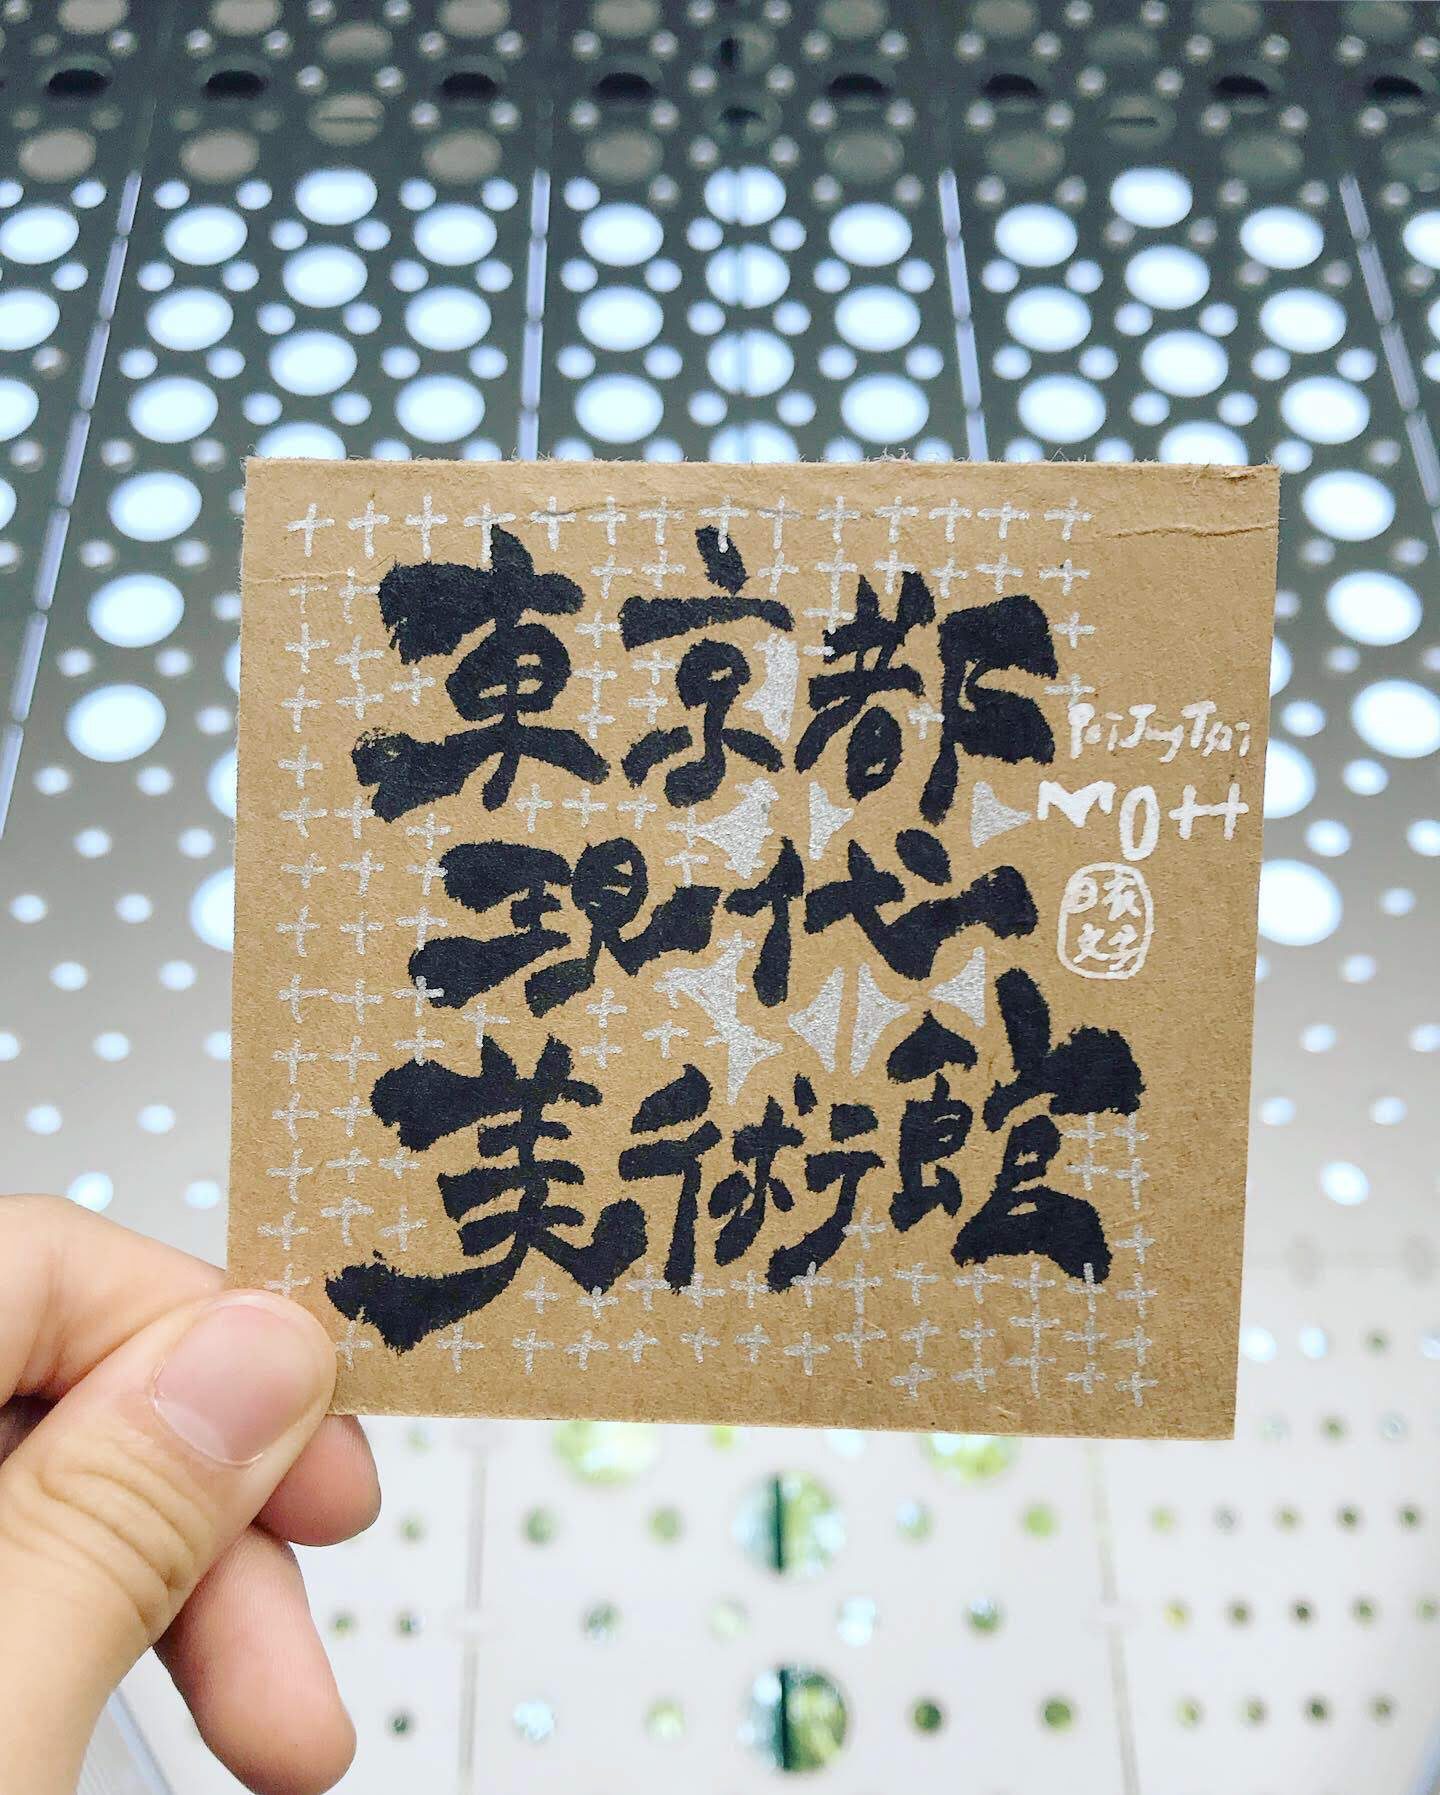 東京都
現代
美術館
PeiJung Tsai